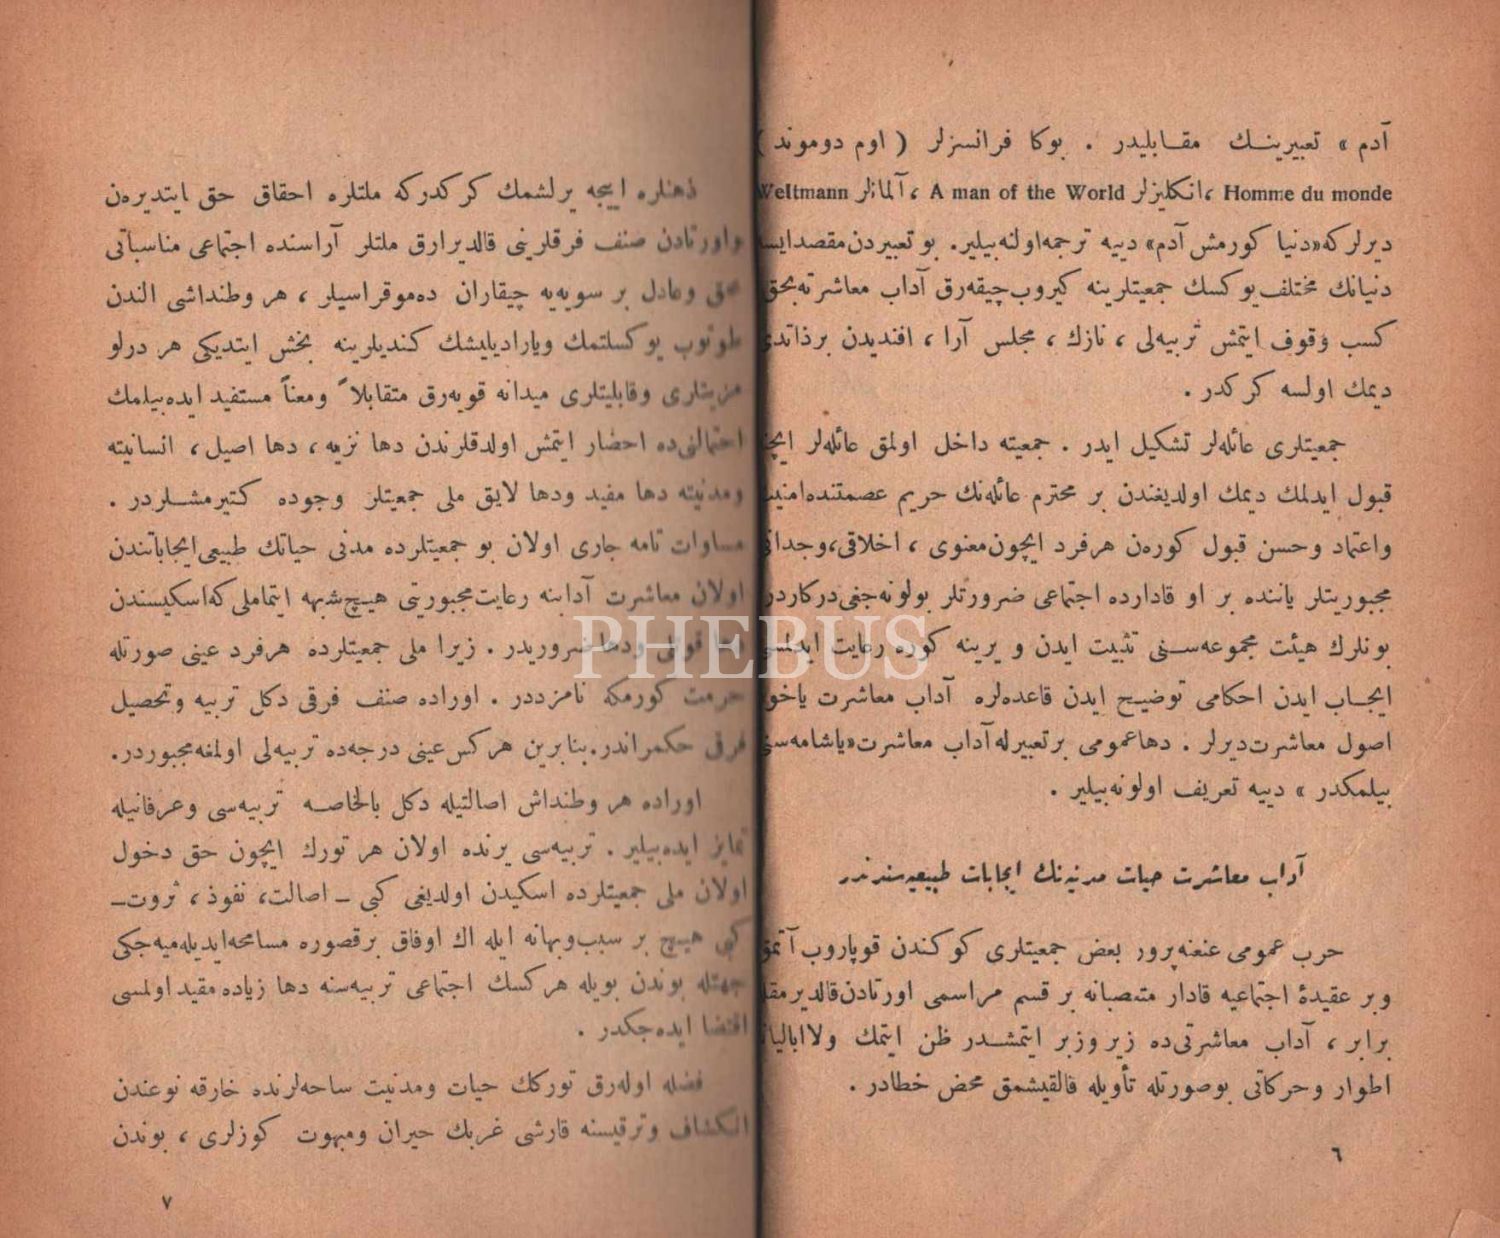 آدم » تعبيرينــك مقــابليدر . بوكا فرانسزلر ( اوم دوموند )
Homme du monde ،انكليزلر A man of the World ،آلمانلر Weltmann
ديرلركه«دنيا كورمش آدم» دييه ترجمه‌اولنه‌بيلير. بو تعبيردن‌مقصدايسه
دنيانك مختلف‌يوكسك جمعيتلرينه كيروب‌چيقه‌رق آداب معاشرته‌بحق
كسب وقوف ايتمش تربيه‌لى ، نازك ، مجلس آرا ، افنديدن برذاتدى
ديمك اولسه كركدر .
جمعيتلرى عائله‌لر تشكيل ايدر . جمعيته داخل اولمق عائله‌لر ايچنه
قبول ايدلمك ديمك اولديغندن بر محترم عائله‌نك حريم عصمتنده‌امنيت
واعتماد وحسن قبول كوره‌ن هرفرد ايچون‌معنوى ، اخلاقى،وجدانى
مجبوريتلر ياننده بر او قادارده اجتماعى ضرورتلر بولونه‌جغى‌دركاردر
بونلرك هيئت مجموعه‌ســنى تثبيت ايدن و يرينه كوره رعايت ايدلمسى
ايجــاب ايدن احكامى توضيح ايدن قاعده‌لره آداب معاشرت ياخود
اصول معاشرت‌ديرلر . دهاعمومى برتعبيرله‌آداب معاشرت«ياشامه‌سنى
بيلمكدر » دييه تعريف اولونه‌بيلير .
آداب معاشرت حيات مدنيه‌نك ايجابات طبيعيه‌سندندر
حرب عمومى عنعنه‌پرور بعض جمعيتلرى كوكندن قوپاروب آتمق
وبر عقيدهٔ اجتماعيه قادار متعصبانه بر قسم مراسمى اورتادن‌قالديرمقله
برابر ، آداب معاشرتى‌ده زير وزبر ايتمشــدر ظن ايتمك ولاابالیانه
اطوار وحركاتى بوصورتله تأويله قالقيشمق محض خطادر .
٦
ذهنلره اييجه يرلشمك كركدركه ملتلره احقاق حق ايتديره‌ن
واورتادن صنف فرقلرينى قالديرارق ملتلر آراسنده اجتماعى مناسباتى
محق وعادل بر سويه‌يه چيقاران ده‌موقراسيلر ، هر وطنداشى الندن
طوتوب يوكسلتمك وياراديليشك كنديلرينه بخش ايتديكى هر درلو
مزيتلرى وقابليتلرى ميدانه قويه‌رق متقابلاً ومعناً مستفيد ايده‌بيلمك
احتمالنى‌ده احضار ايتمش اولدقلرندن دها نزيه ، دها اصيل ، انسانيته
ومدنيته دها مفيد ودها لايق ملى جمعيتلر وجوده كتيرمشــلردر .
مساوات تامه جارى اولان بو جمعيتلرده مدنى حياتك طبيعى‌ايجاباتندن
اولان معاشرت آدابنه رعايت‌مجبوريتى هيچ‌شبهه ايتماملى‌كه‌اسكيسندن
دها قوتلى ودها ضروريدر . زيرا ملى جمعيتلرده هرفرد عينى صورتله
حرمت كورمكه نامزددر . اوراده صنف فرقى دكل تربيه وتحصيل
فرقى حكمراندر.بنابرين هركس‌عينى درجه‌ده تربيه‌لى اولمغه‌مجبوردر.
اوراده هر وطنداش اصالتيله دكل بالخاصــه تربيه‌سى وعرفانيله
تمايز ايده‌بيلير . تربيه‌سى يرنده اولان هر تورك ايچون حق دخول
اولان ملى جمعيتلرده اسكيدن اولديغى كبى ـ اصالت، نفوذ ، ثروت ـ
كبى هيــچ بر سبب‌وبهانه ايله اك اوفاق برقصوره مسامحه‌ايديله‌ميه‌جكى
جهتله بوندن بويله هركسك اجتماعى تربيه‌سنه دها زياده مقيد اولمسى
اقتضا ايده‌جكدر .
فضله اوله‌رق توركك حيات ومدنيت ساحه‌لرنده خارقه نوعندن
انكشاف وترقيسنه قارشى غربك حيران ومبهوت كوزلرى ، بوندن
٧
PHEBUS